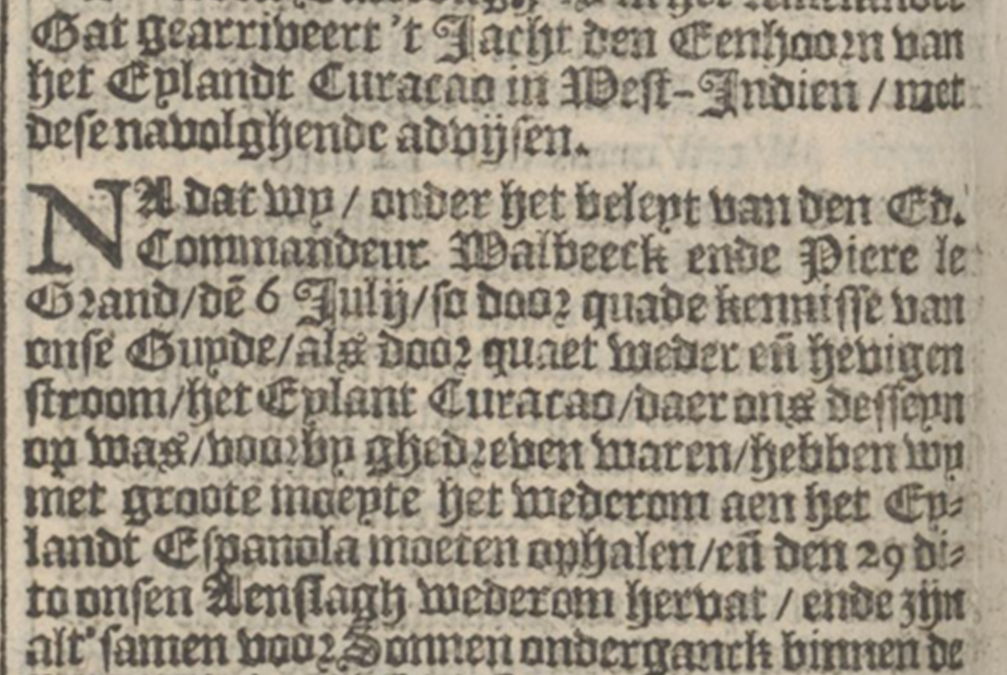 Gat gearriveert 't Jacht den Eenhoorn van
het Eylandt Curacao in West-Indien / met
dese navolghende advijsen.
NA dat wy / onder het beleyt van den Ed.
Commandeur Walbeeck ende Piere le
Grand/dē 6 Julij/so door quade kennisse van
onse Guyde/als door quaet weder eñ hevigen
stroom/het Eylant Curacao/daer ons desseyn
op was/voorby ghedreven waren/hebben wy
met groote moeyte het wederom aen het Ey-
landt Espanola moeten ophalen/eñ den 29 di-
to onsen Aenslagh wederom hervat / ende zijn
alt'samen voor Sonnen onderganck binnen de